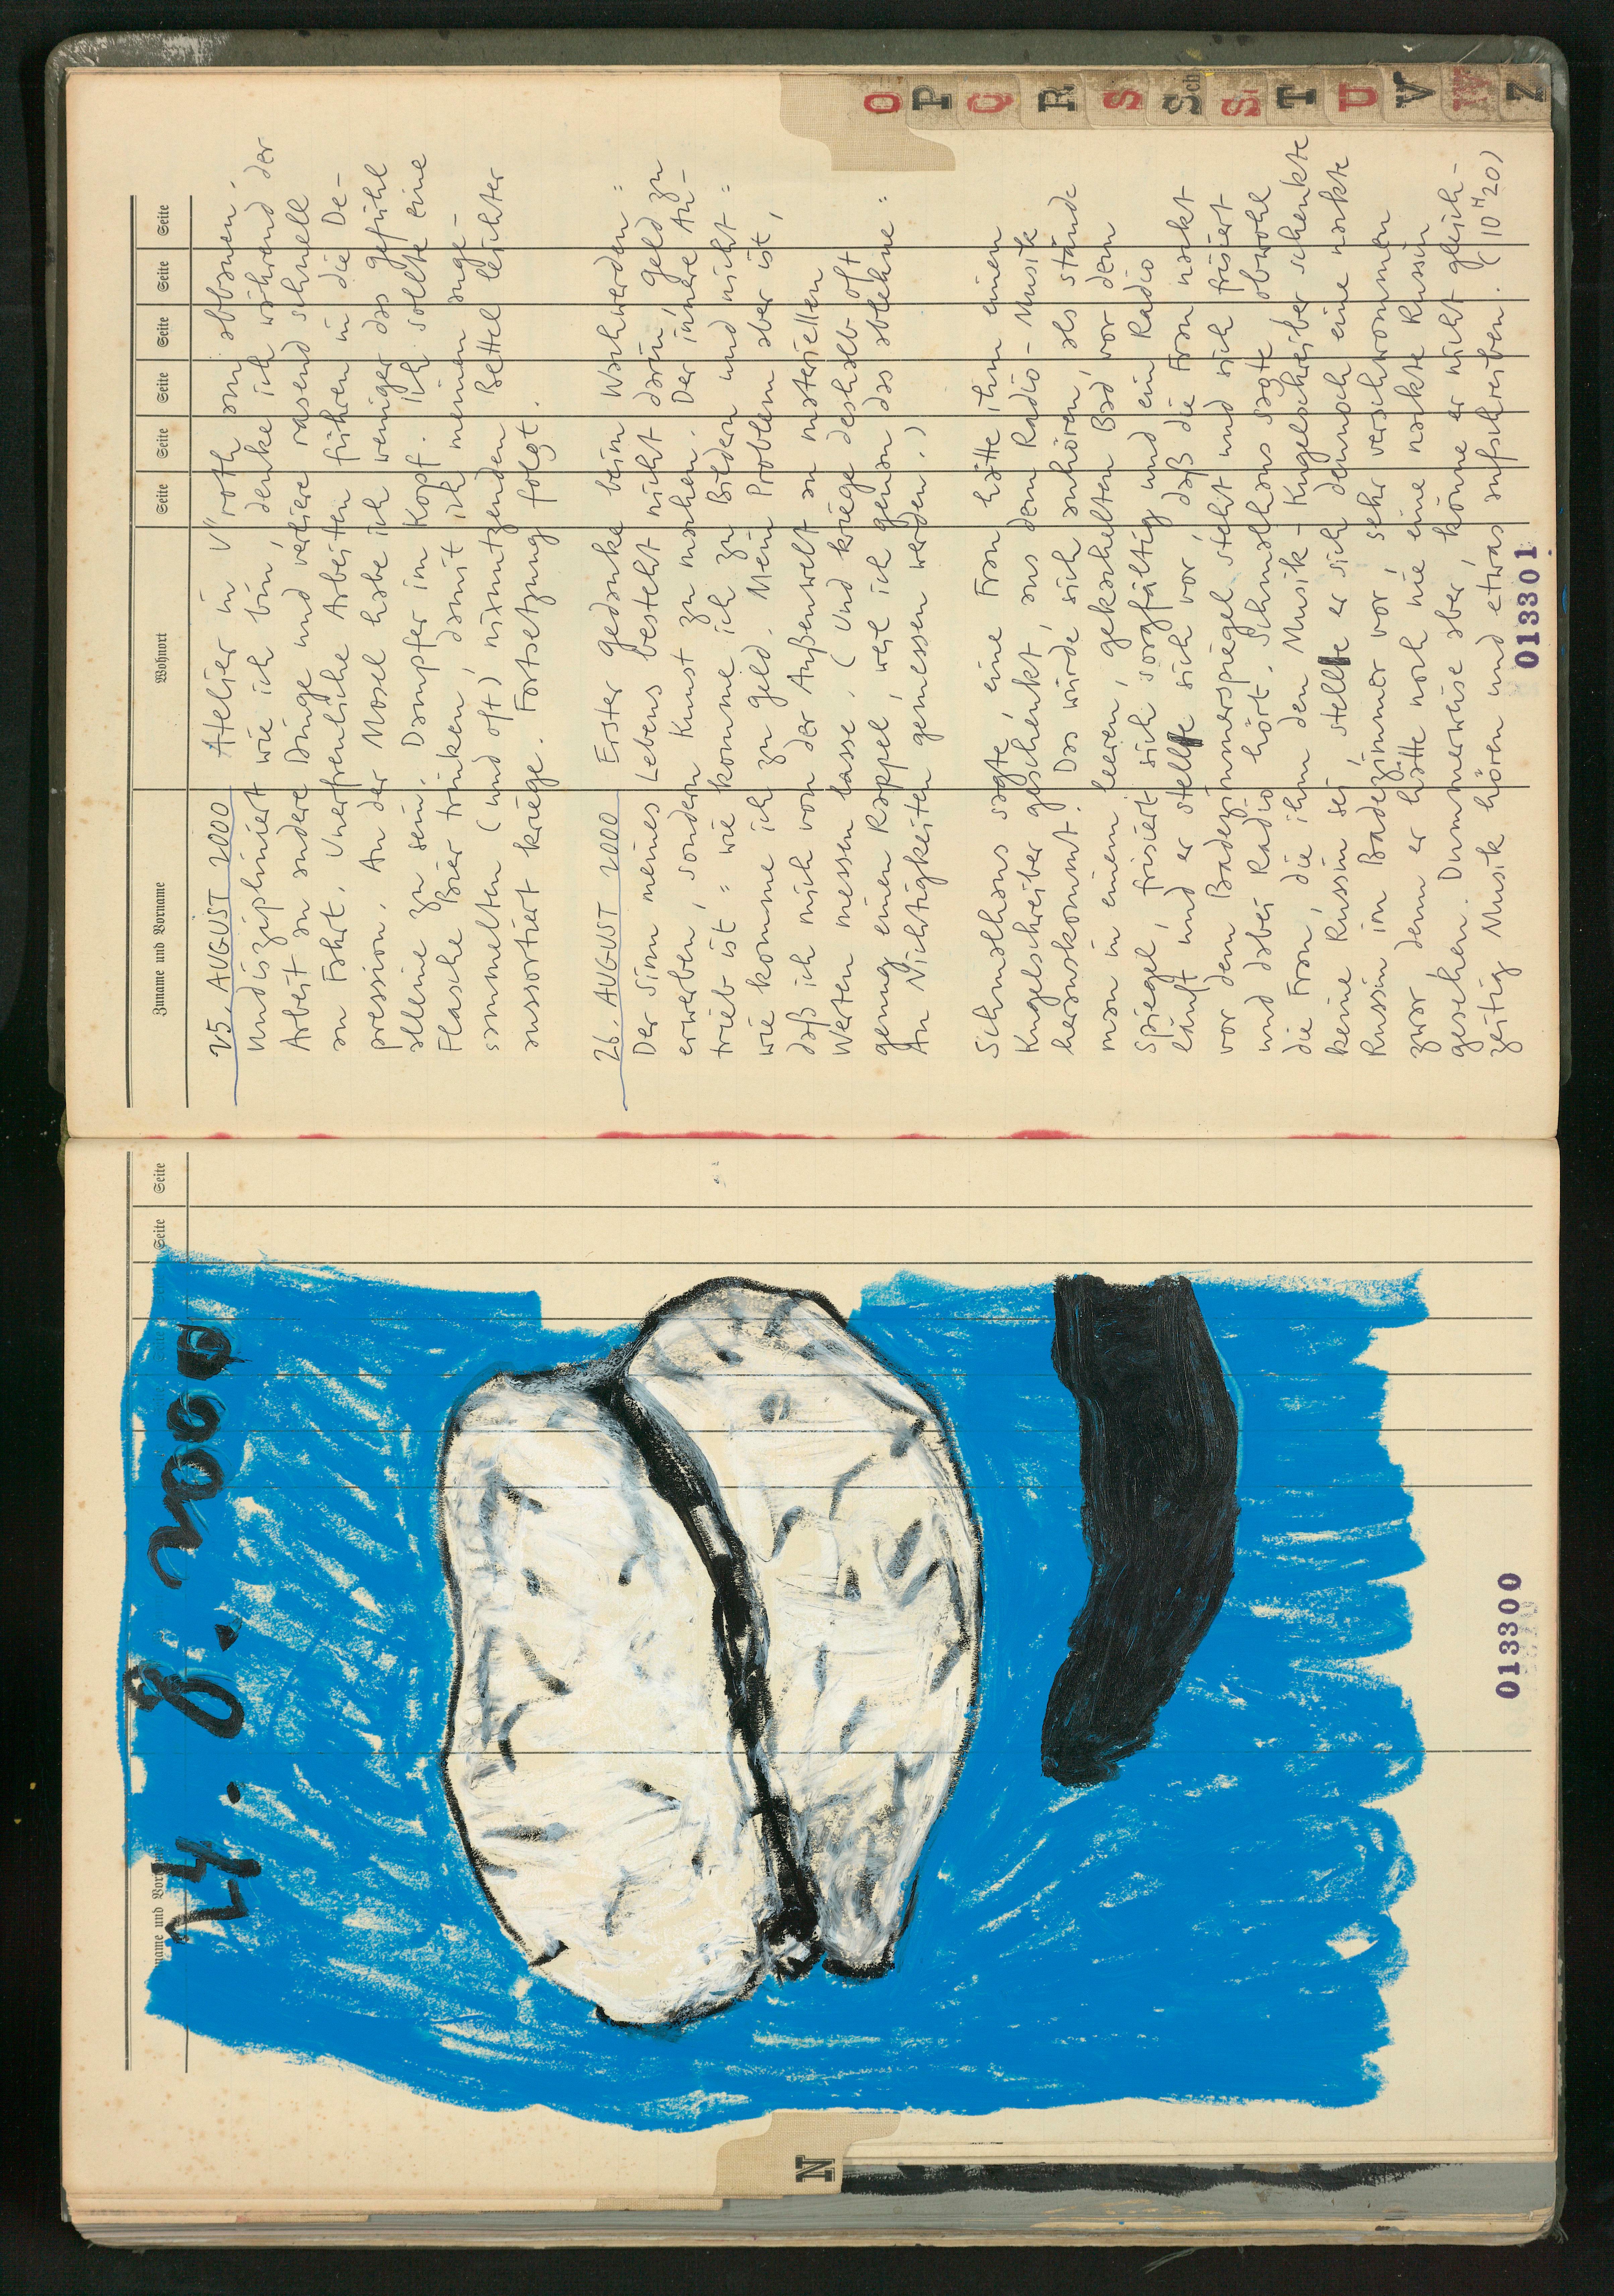 name und Vor Seite Seite
24. 8. 2000
N
013300
Zuname und Vorname Wohnort Seite Seite Seite Seite Seite Seite
25. AUGUST 2000 Atelier in V"roth am abbauen.
Undiszipliniert wie ich bin, denke ich während der
Arbeit an andere Dinge und verliere rasend schnell
an Fahrt. Unerfreuliche Arbeiten führen in die De-
pression. An der Mosel habe ich weniger das gefühl
alleine zu sein. Dampfer im Kopf. Ich sollte eine
Flasche Bier trinken, damit ich meinen ange-
sammelten (und oft) nixnutzenden Bettel leichter
aussortiert kriege. Fortsetzung folgt.
26. AUGUST 2000 Erster gedanke beim Wachwerden =
Der Sinn meines Lebens besteht nicht darin, geld zu
erwerben, sondern Kunst zu machen. Der innere An-
trieb ist = wie komme ich zu Bildern und nicht =
wie komme ich zu geld. Mein Problem aber ist,
daß ich mich von der Außenwelt an materiellen
Werten messen lasse. (Und kriege deshalb oft
genug einen Rappel, weil ich genau das ablehne =
An Nichtigkeiten gemessen werden.)
Schmalhans sagte, eine Frau hätte ihm einen
Kugelschreiber geschenkt, aus dem Radio-Musik
herauskommt. Das würde sich anhören, als stände
man in einem leeren, gekachelten Bad, vor dem
Spiegel, frisiert sich sorgfältig und ein Radio
läuft und er stelle sich vor, daß die Frau nackt
vor dem Badezimmerspiegel steht und sich frisiert
und dabei Radio hört. Schmalhans sagte obwohl
die Frau, die ihm den Musik-Kugelschreiber schenkte
keine Russin sei, stelle er sich dennoch eine nackte
Russin im Badezimmer vor, sehr verschwommen
zwar, denn er hätte noch nie eine nackte Russin
gesehen. Dummerweise aber, könne er nicht gleich-
zeitig Musik hören und etwas aufschreiben. (10H20)
013301
O
P
Q
R
S
Sch
St
T
U
V
W
Z